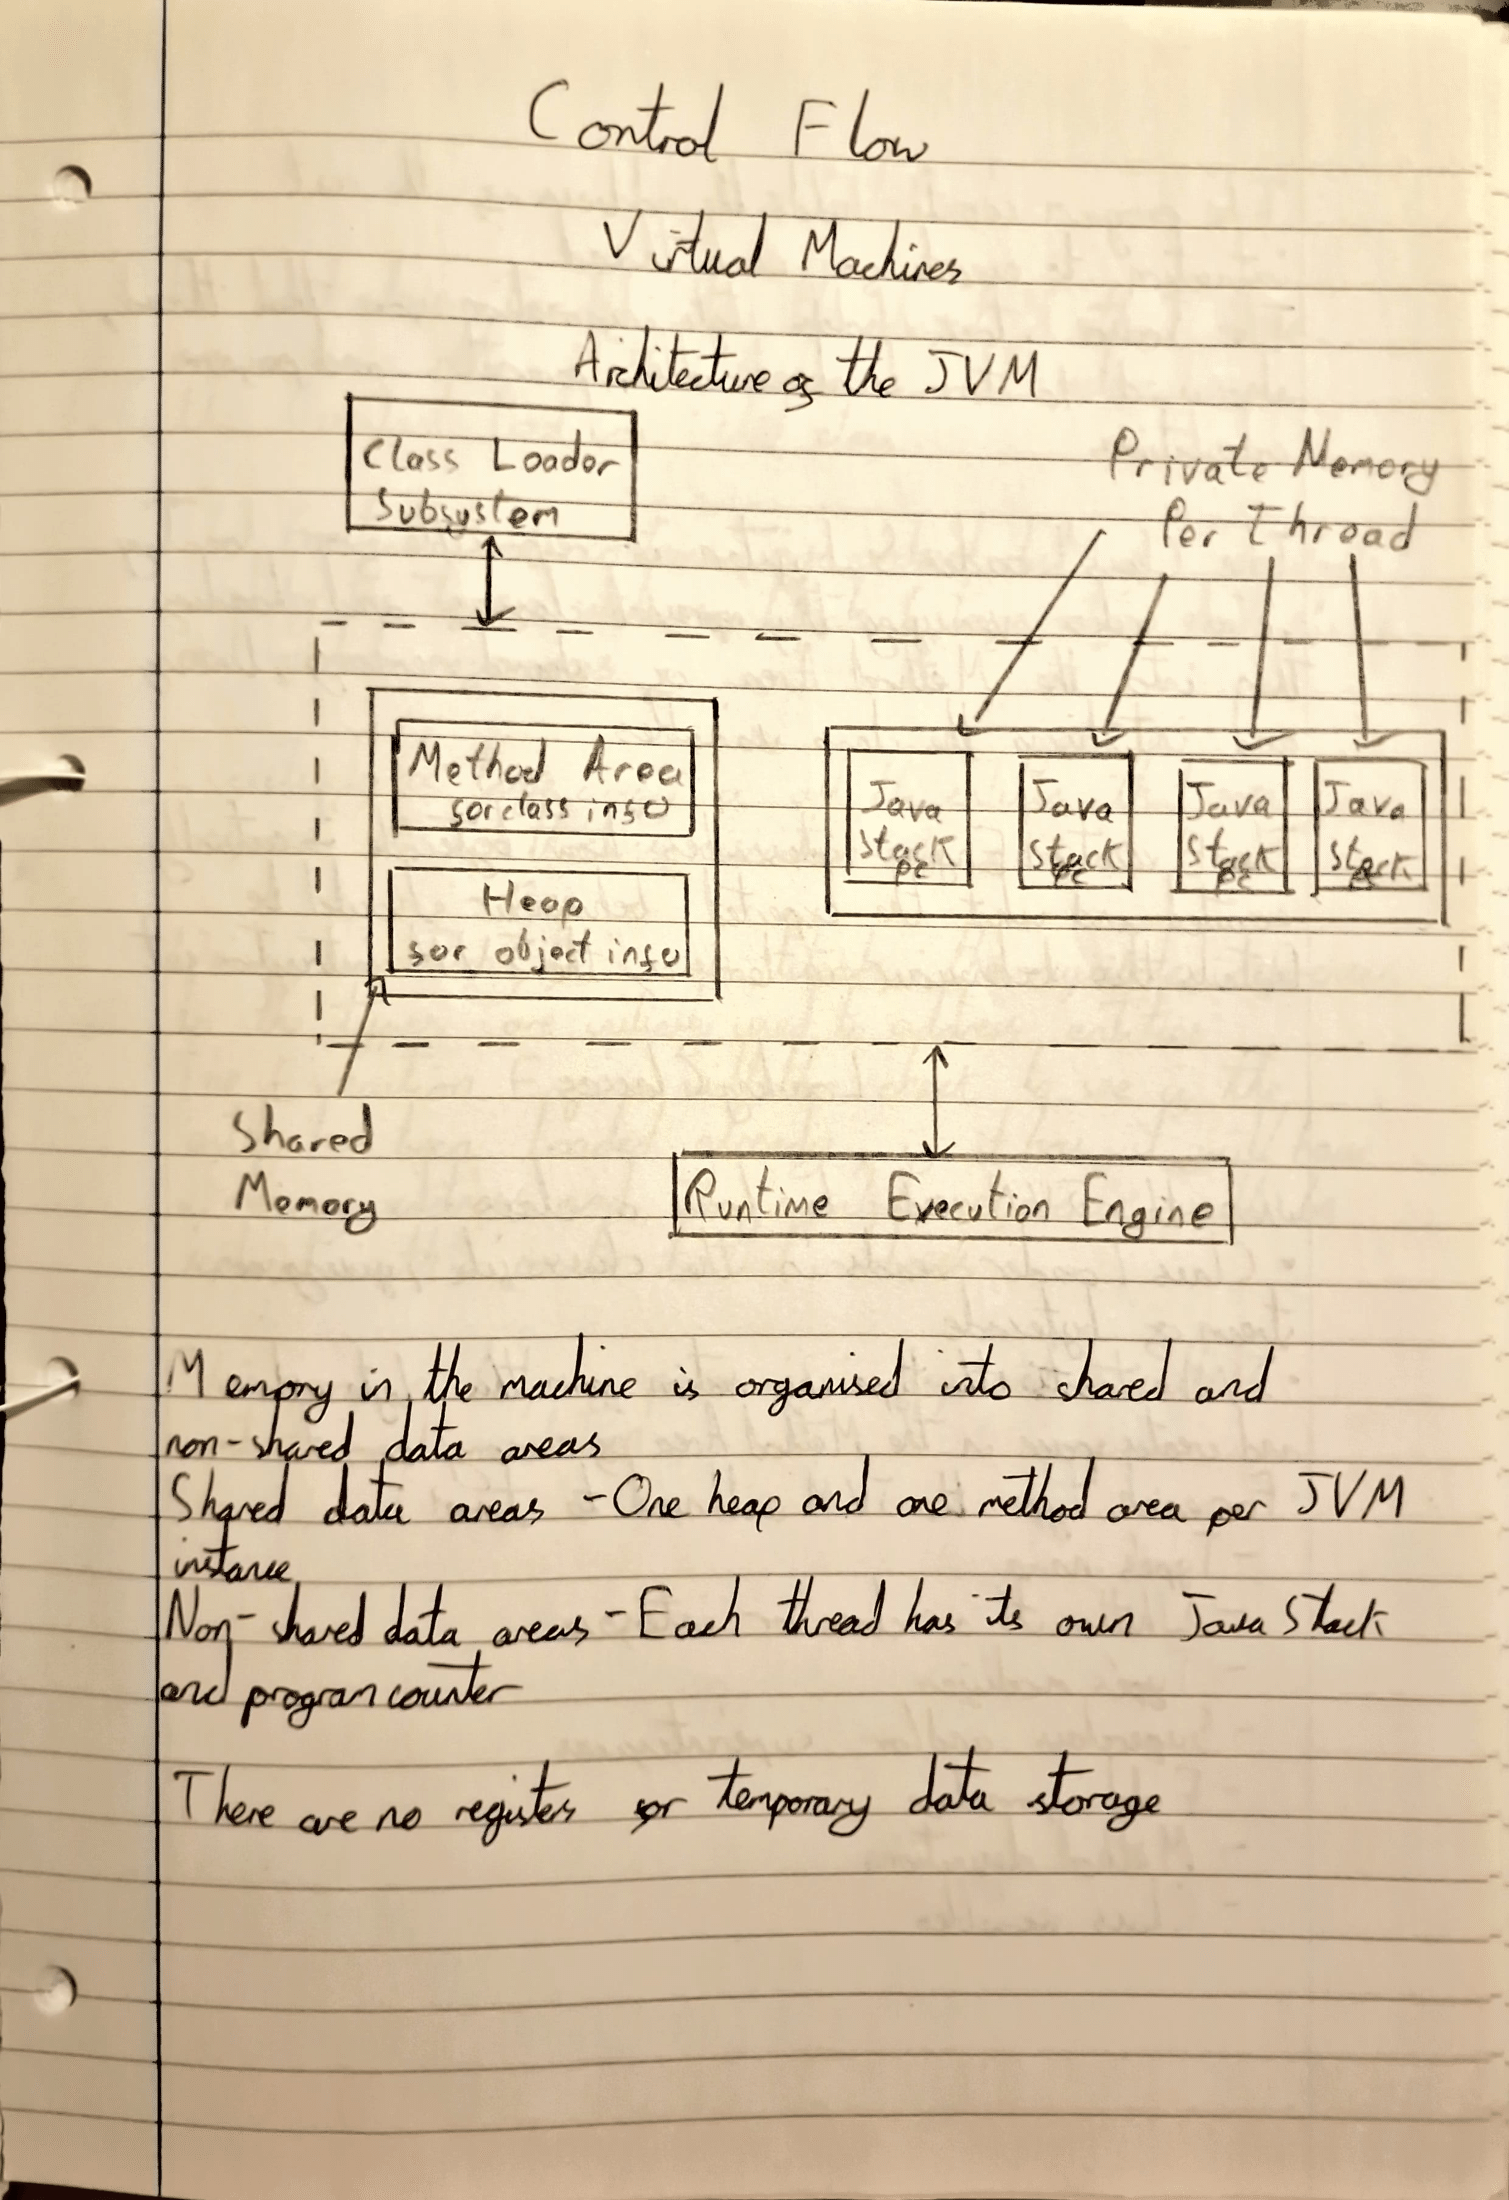 Control Flow
Virtual Machines
Architecture of the JVM
Class Loader
Subsystem
Private Memory
Per Thread
Method Area
for class info
Heap
for object info
Java
Stack
PC
Java
Stack
PC
Java
Stack
PC
Java
Stack
PC
Shared
Memory
Runtime Execution Engine
Memory in the machine is organised into shared and
non-shared data areas
Shared data areas - One heap and one method area per JVM
instance
Non-shared data areas - Each thread has its own Java Stack
and program counter
There are no registers for temporary data storage